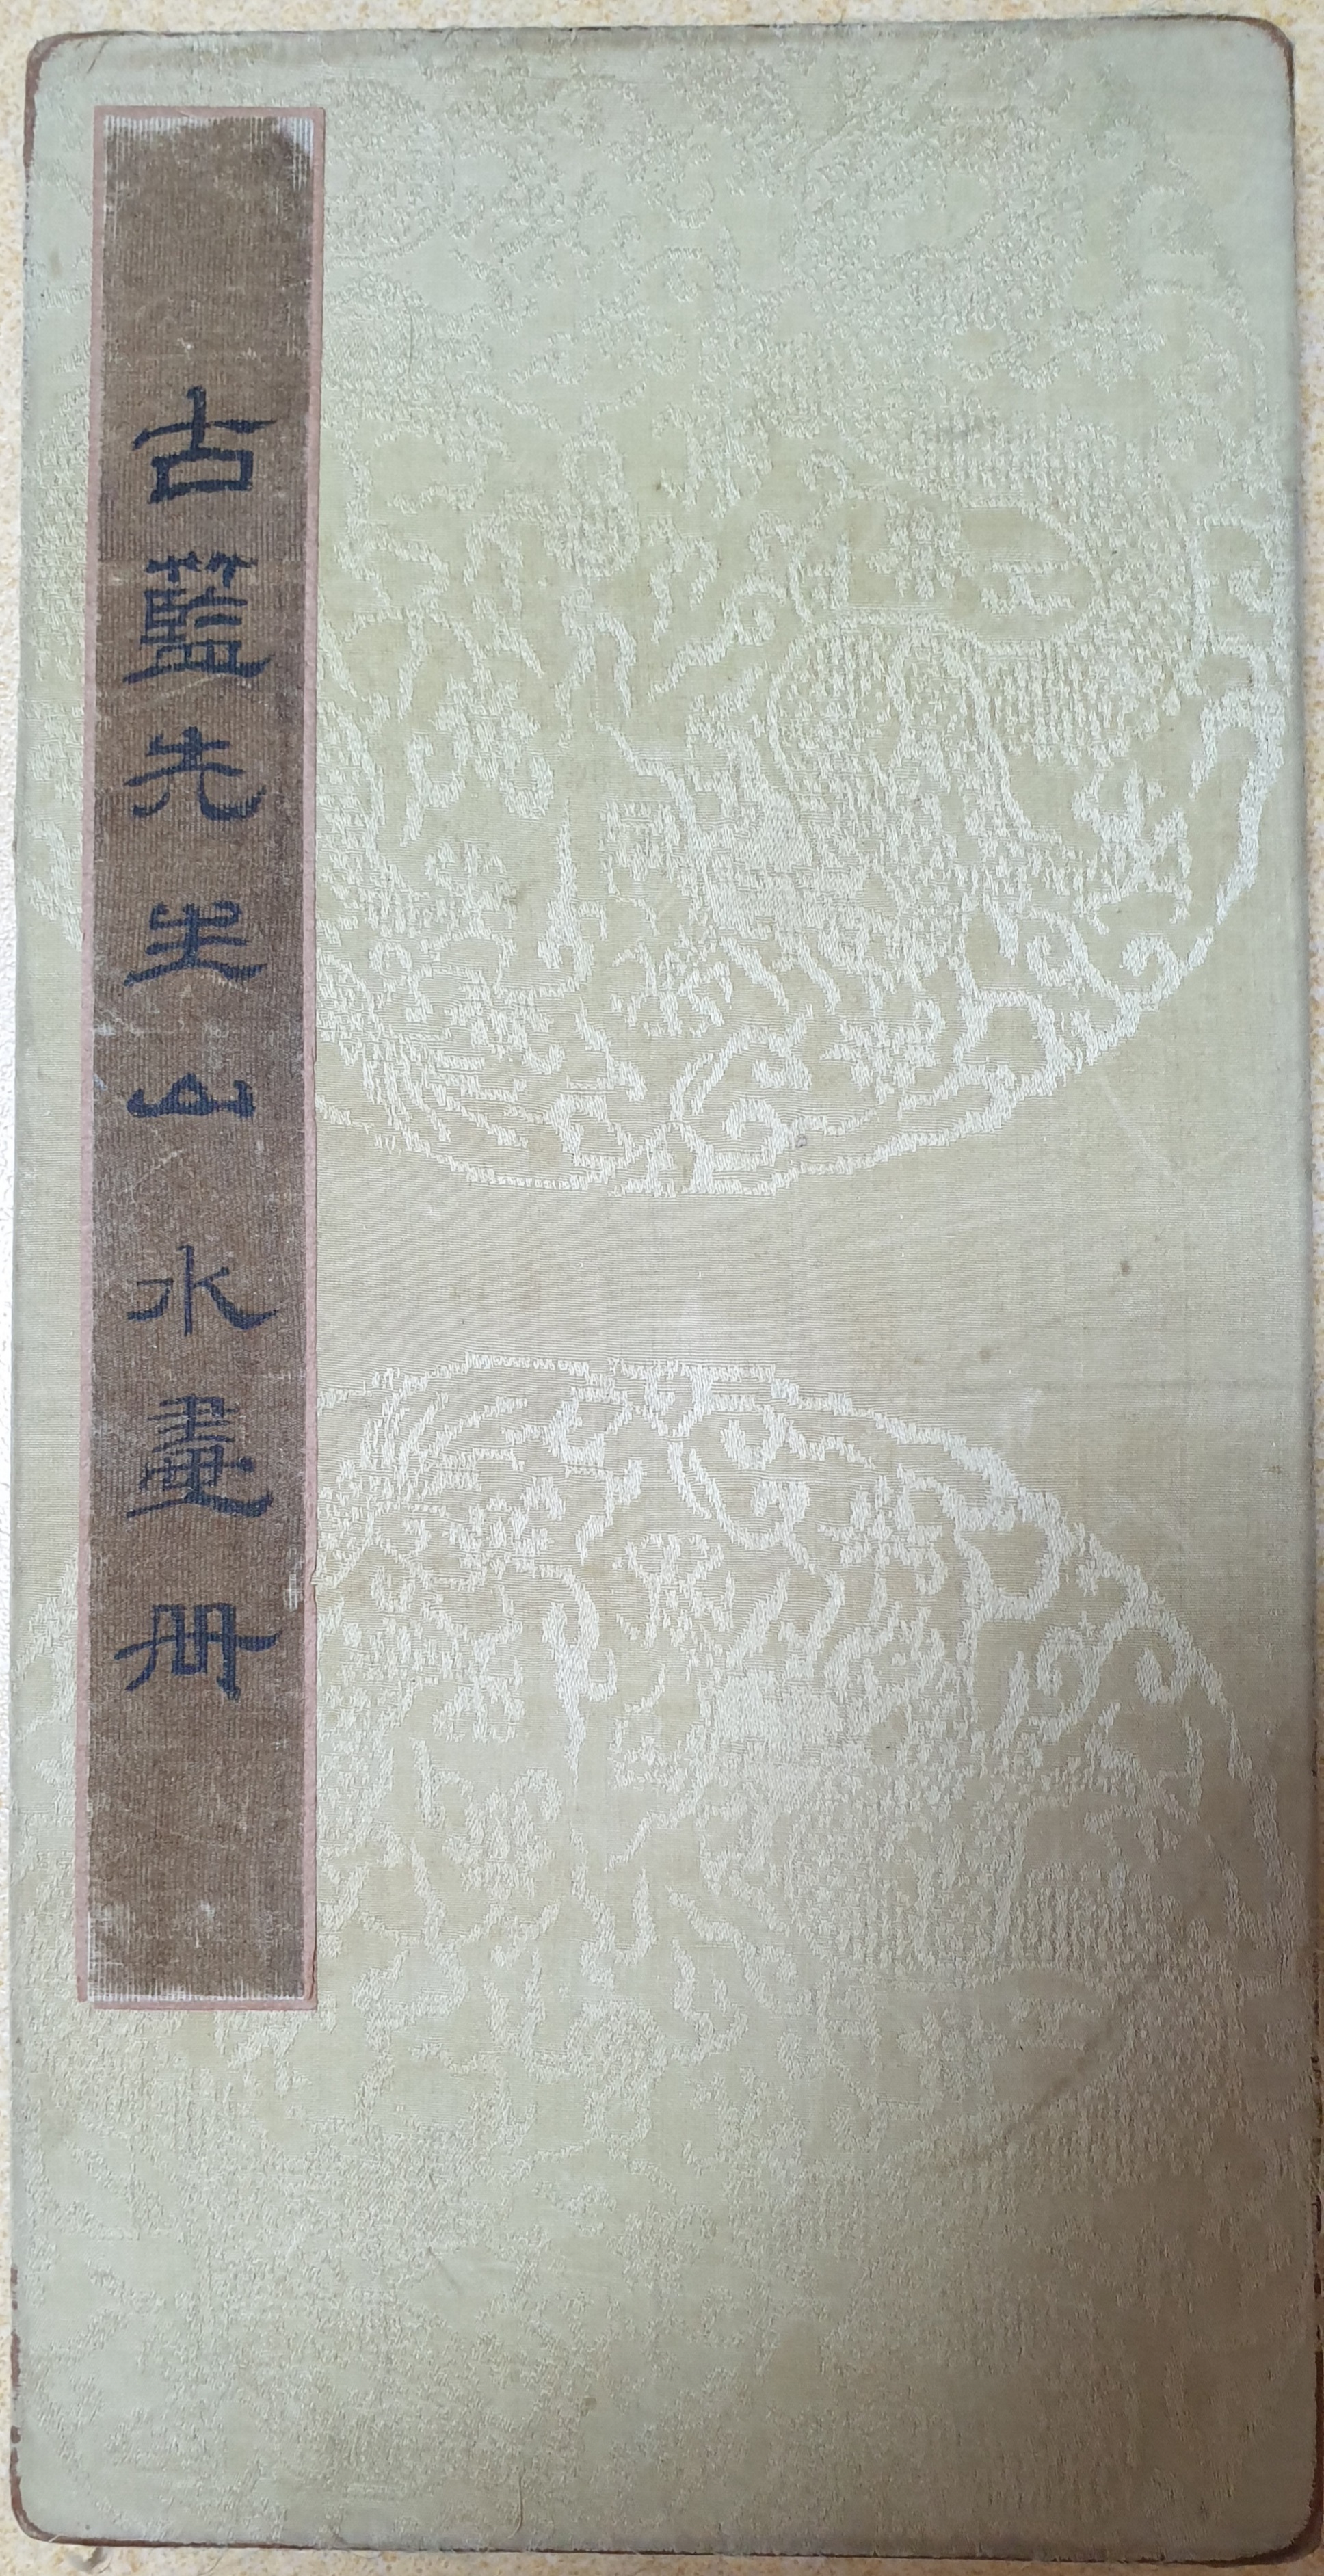 古籃先生山水畫册